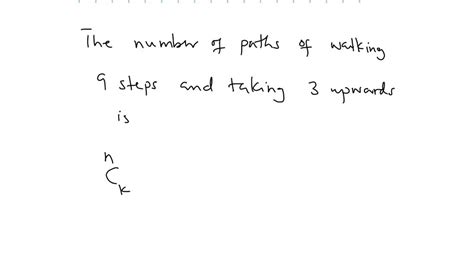 The number of paths of walking
9 steps and taking 3 upwards
is
n
C
k